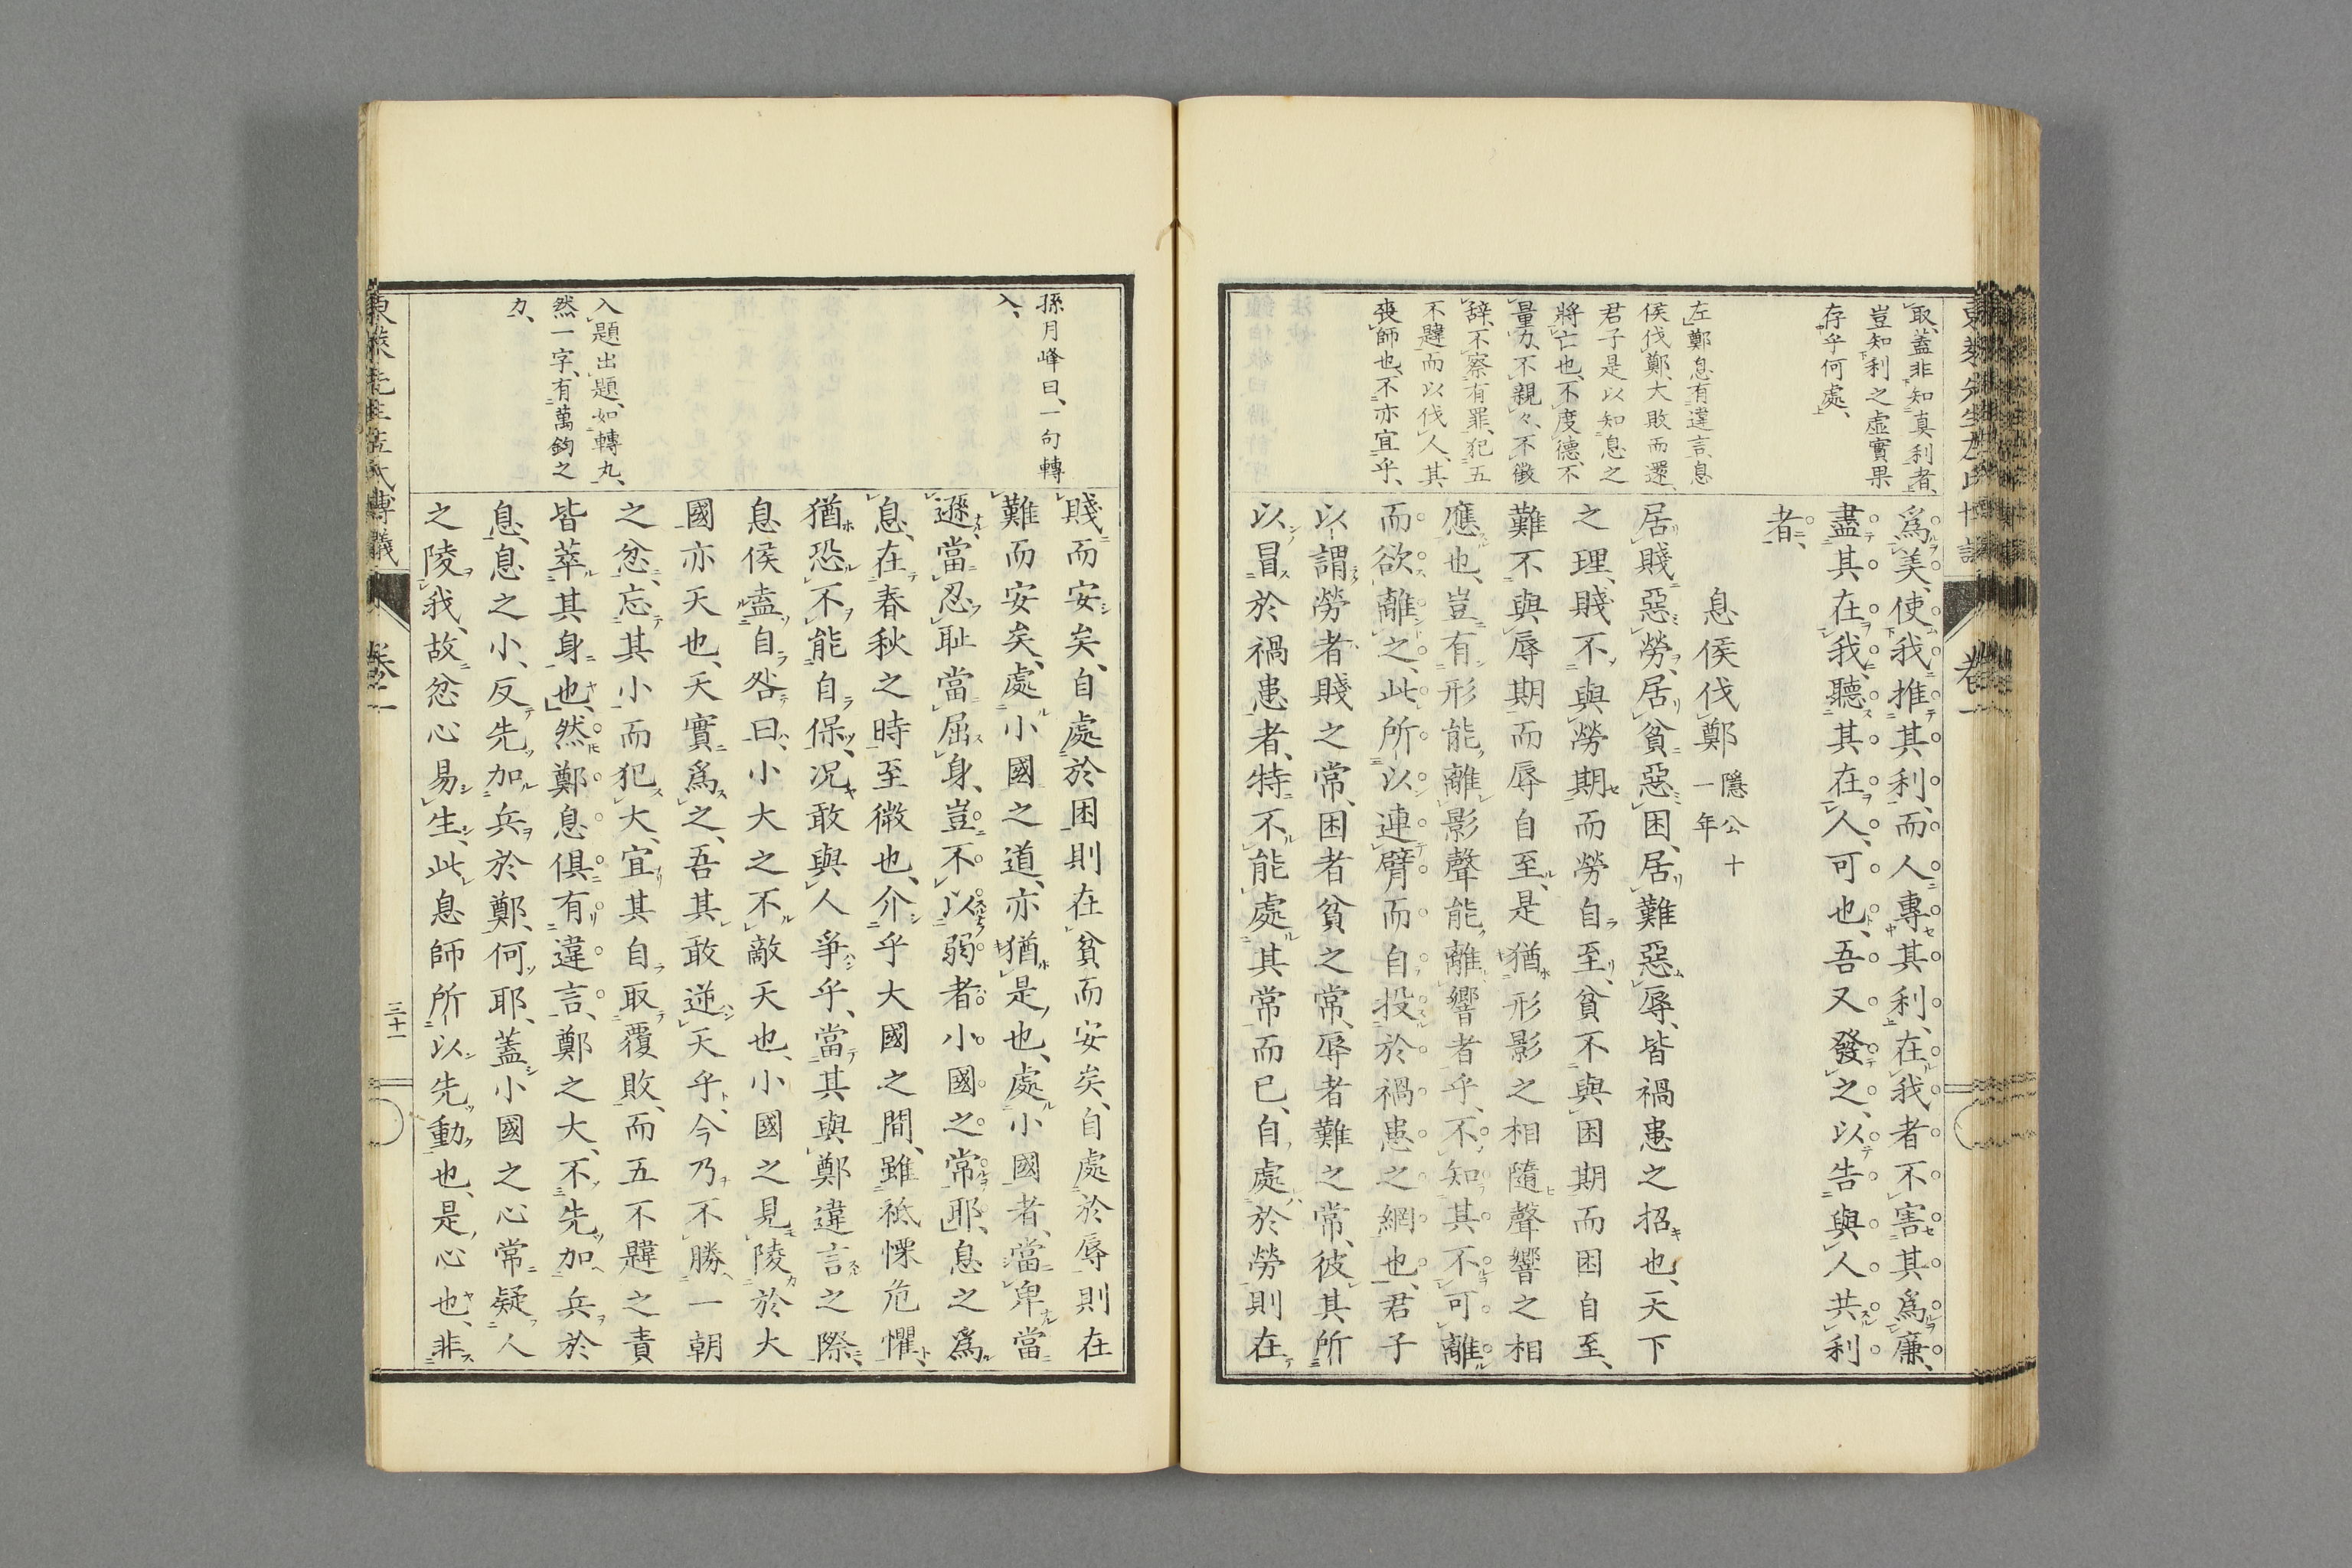 取、蓋非知真利者、
豈知利之虛實果
存乎何處、
左鄭息有違言、息
侯伐鄭、大敗而還、
君子是以知息之
將亡也、不度德、不
量力、不親々、不徵
辭、不察有罪、犯五
不韙而以伐人、其
喪師也、不亦宜乎、
爲美、使我推其利、而人專其利、在我者不害其爲廉、
盡其在我、聽其在人、可也、吾又發之、以告與人共利
者、
息侯伐鄭 隱公十一年
居賤惡勞、居貧惡困、居難惡辱、皆禍患之招也、天下
之理、賤不與勞期而勞自至、貧不與困期而困自至、
難不與辱期而辱自至、是猶形影之相隨聲響之相
應也、豈有形能離影聲能離響者乎、不知其不可離
而欲離之、此所以連臂而自投於禍患之網也、君子
以謂勞者賤之常、困者貧之常、辱者難之常、彼其所
以冒於禍患者、特不能處其常而已、自處於勞則在
孫月峰曰、一句轉
入、
入題出題、如轉丸、
然一字、有萬鈞之
力、
賤而安矣、自處於困則在貧而安矣、自處於辱則在
難而安矣、處小國之道、亦猶是也、處小國者、當卑當
遜、當忍恥當屈身、豈不以弱者小國之常耶、息之爲
息、在春秋之時至微也、介乎大國之間、雖祗慄危懼、
猶恐不能自保、況敢與人爭乎、當其與鄭違言之際、
息侯盍自咎曰、小大之不敵天也、小國之見陵於大
國亦天也、天實爲之、吾其敢逆天乎、今乃不勝一朝
之忿、忘其小而犯大、宜其自取覆敗、而五不韙之責
皆萃其身也、然鄭息俱有違言、鄭之大、不先加兵於
息、息之小、反先加兵於鄭、何耶、蓋小國之心常疑人
之陵我、故忿心易生、此息師所以先動也、是心也、非
東萊先生左氏博議
卷一
三十一